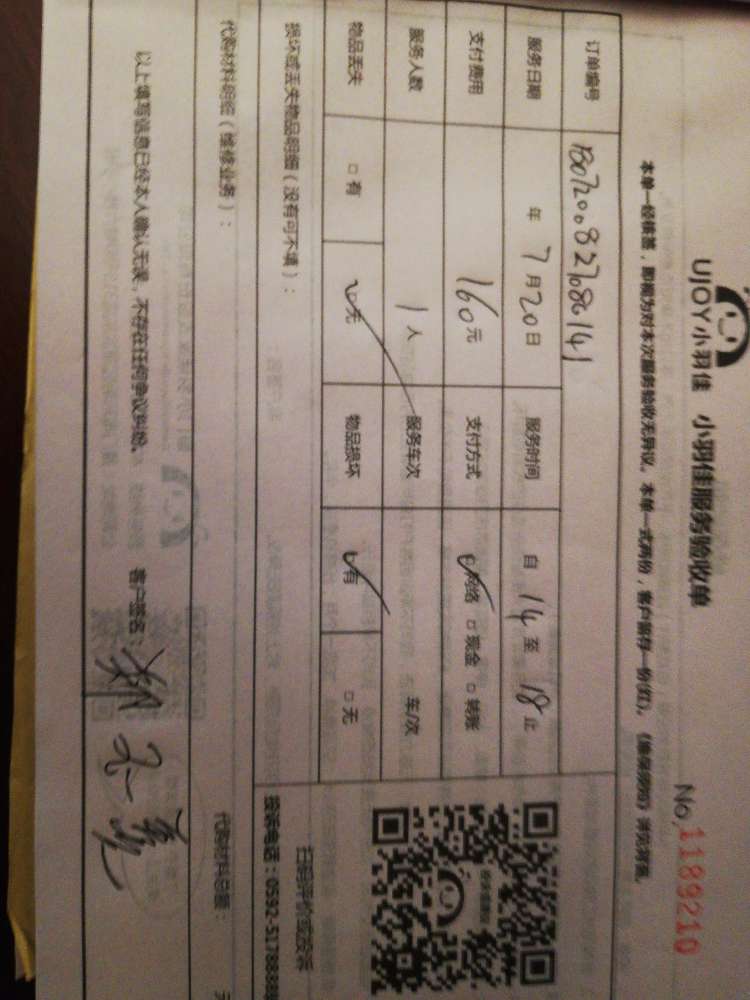 UJOY小羽佳 小羽佳服务验收单
No.1189210
本单一经核签，即视为对本次服务验收无异议。本单一式两份，客户留存一份(红)。
订单编号
服务日期 年 7月20日 服务时间 自 14 至 18 止
支付费用 160元 支付方式 网络 □ 现金 □ 转账
服务人数 1人 服务车次 车/次
物品丢失 □ 有 □ 无 物品损坏 □ 有 □ 无
损坏或丢失物品明细（没有可不填）：
扫码评价或投诉
投诉电话：0592-5178888
代购材料明细（维修业务）：
代购材料总额：
以上填写信息已经本人确认无误，不存在任何争议纠纷。 客户签名：